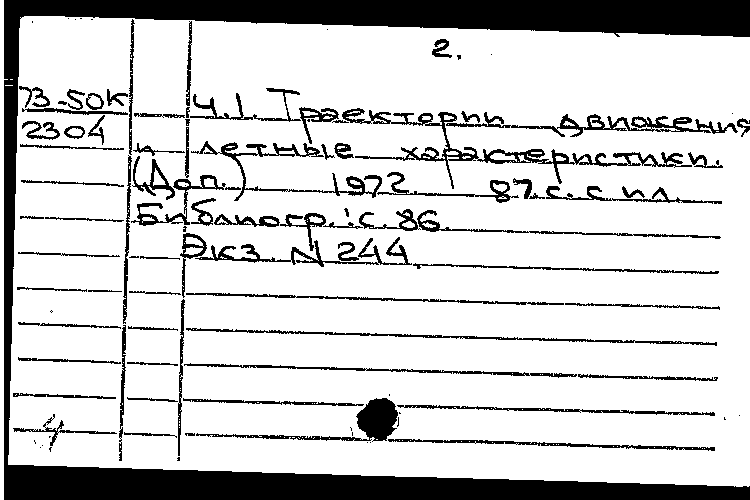 2.
73-50К Ч.1. Траектории движения
2304 и летные характеристики.
(Доп.). 1972. 87.с. с ил.
Библиогр.: с. 86.
Экз. N 244.
4